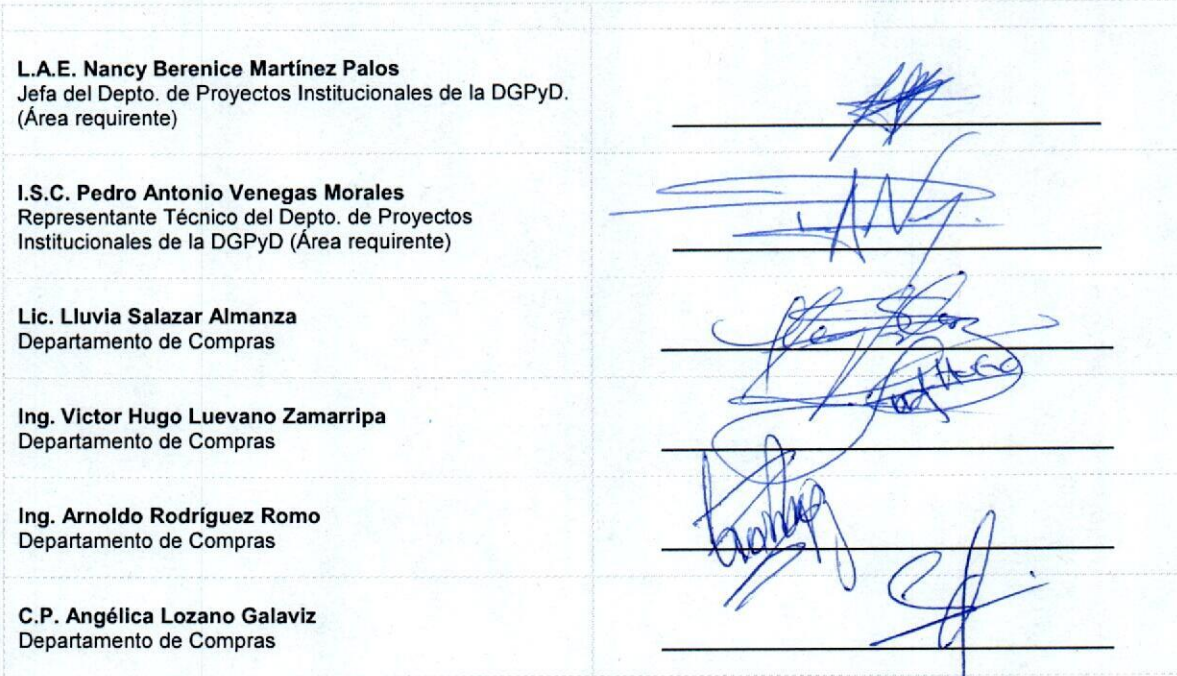 L.A.E. Nancy Berenice Martínez Palos
Jefa del Depto. de Proyectos Institucionales de la DGPyD.
(Área requirente)
I.S.C. Pedro Antonio Venegas Morales
Representante Técnico del Depto. de Proyectos
Institucionales de la DGPyD (Área requirente)
Lic. Lluvia Salazar Almanza
Departamento de Compras
Ing. Victor Hugo Luevano Zamarripa
Departamento de Compras
Ing. Arnoldo Rodríguez Romo
Departamento de Compras
C.P. Angélica Lozano Galaviz
Departamento de Compras